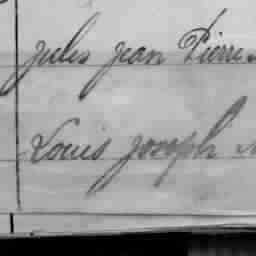 Jules Jean Pierre
Louis Joseph